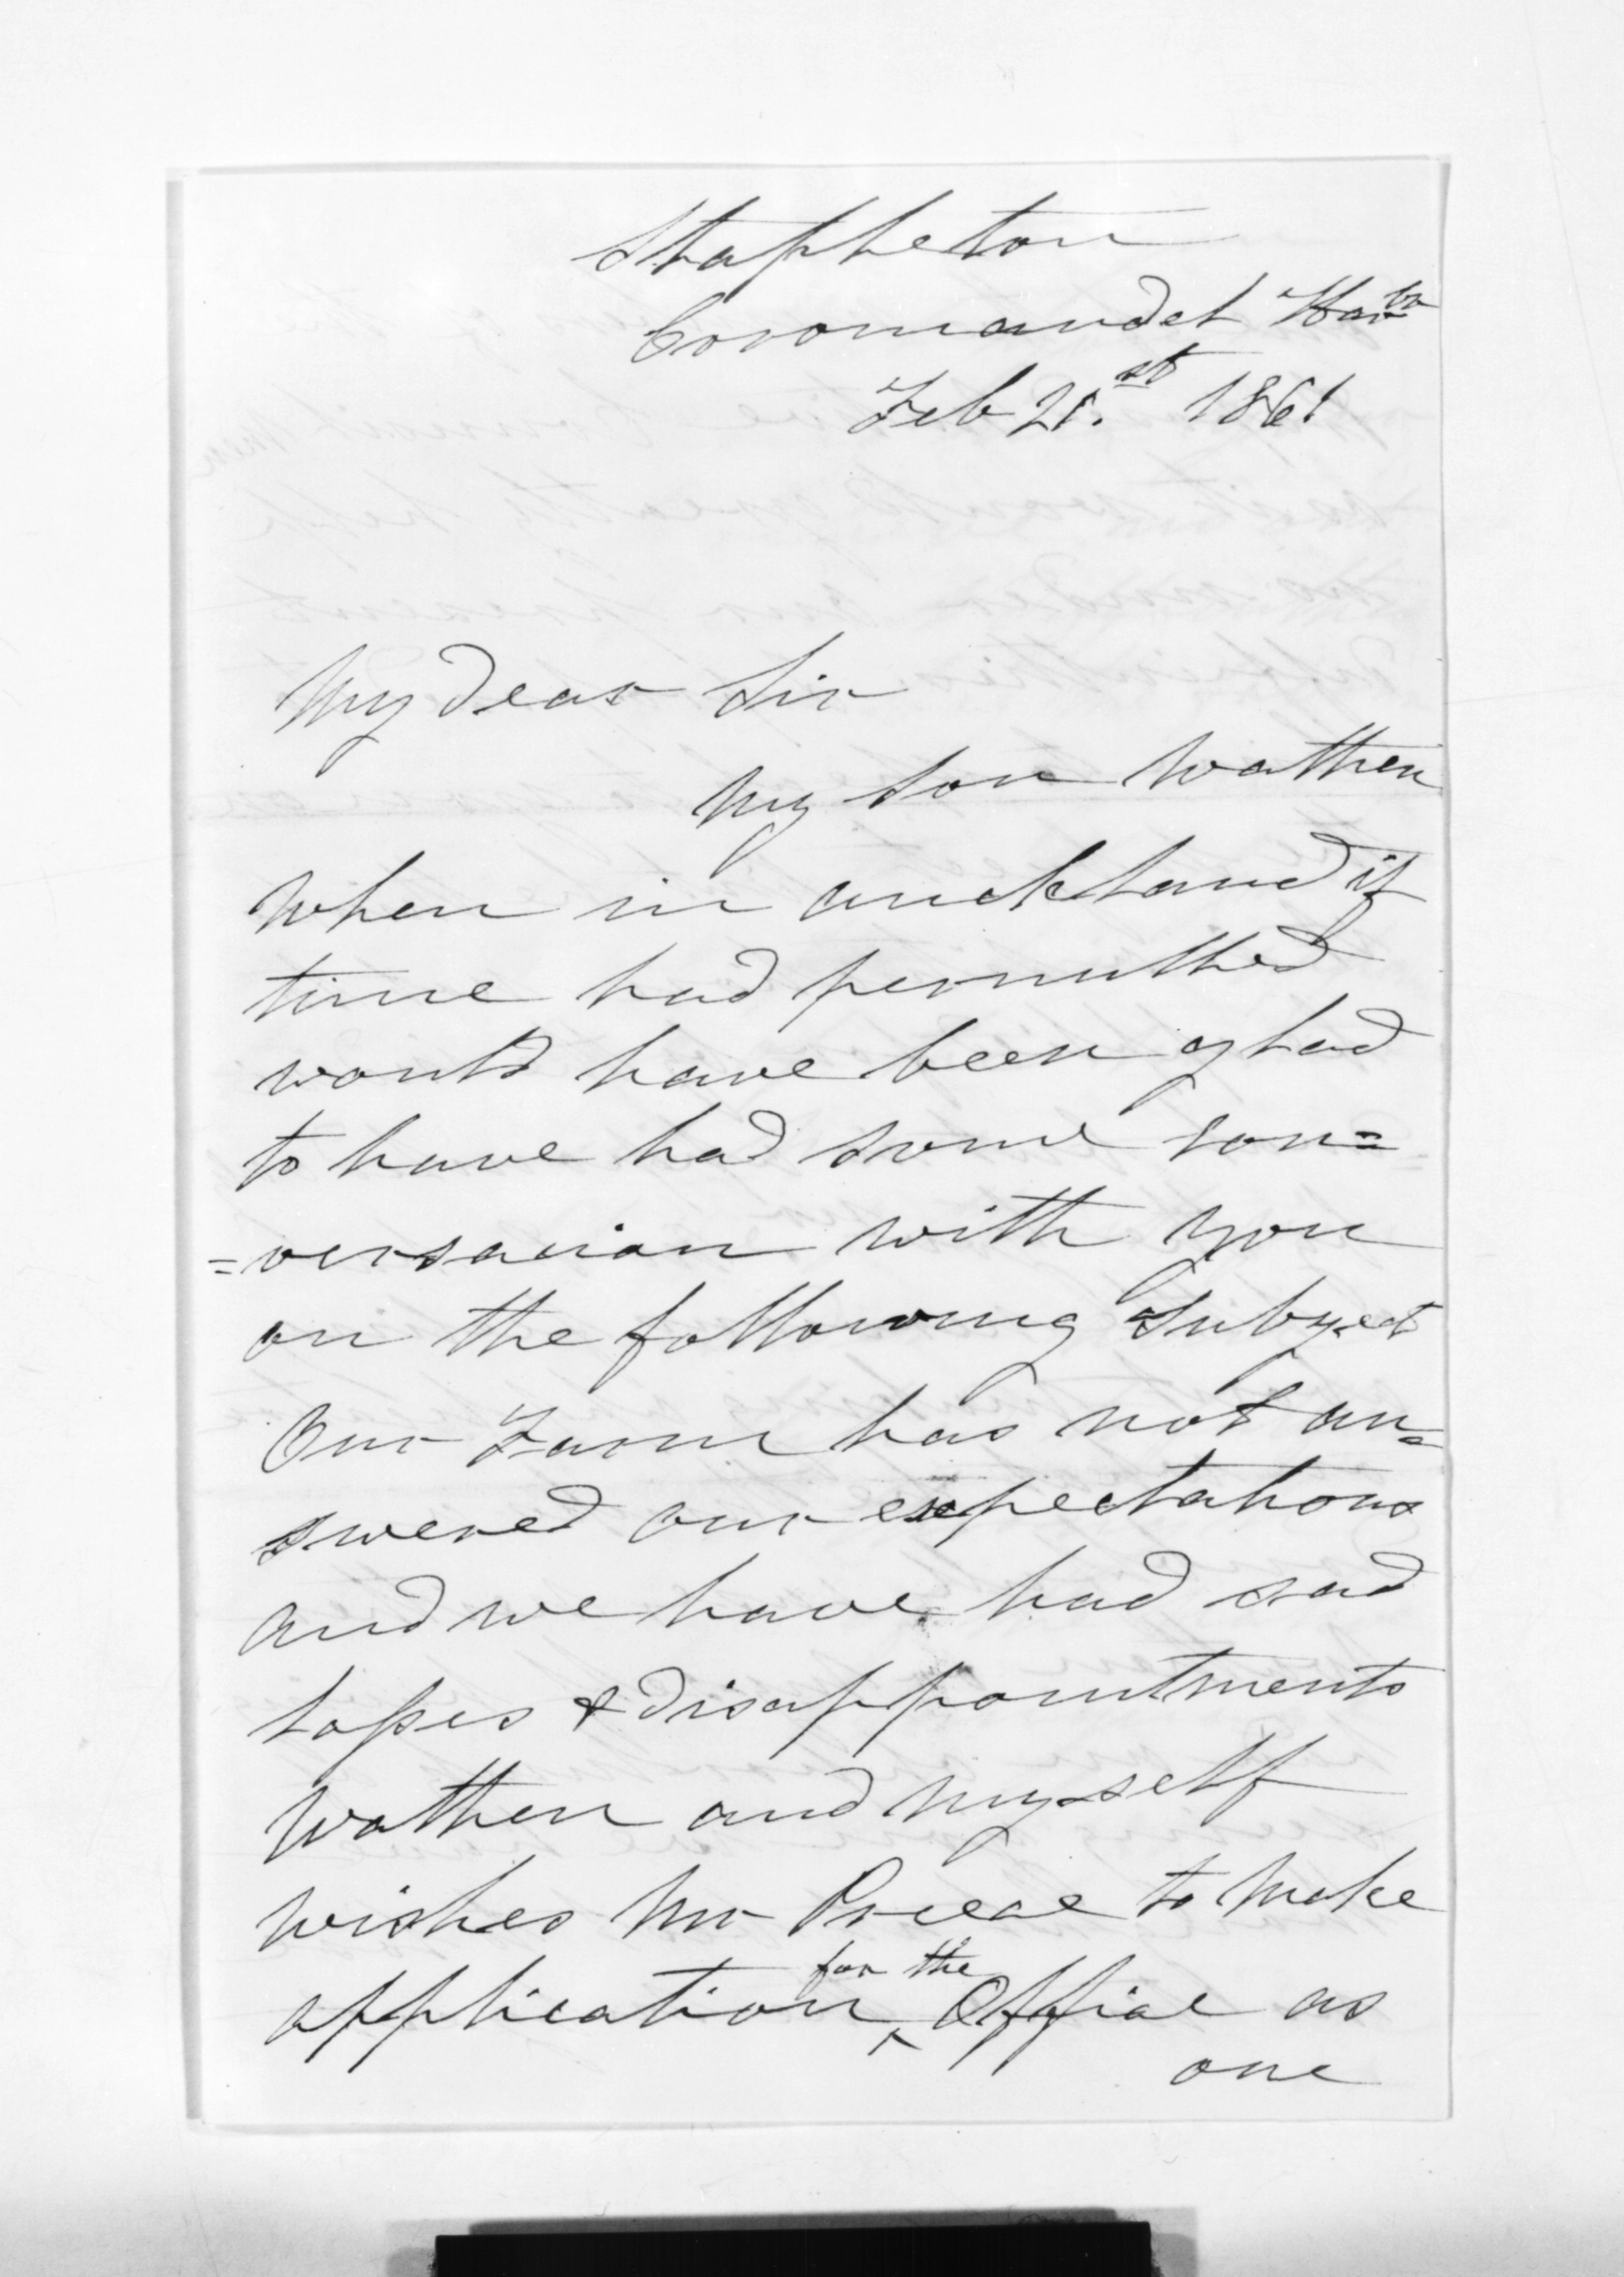 Stapleton
Coromandel Harbr
Feb 21.st 1861
My Dear Sir
My son Wathen
when in auckland if
time had permitted
would have been glad
to have had some con=
=versacion with you
on the following Subject
Our Farm has not an=
swered our expectations
and we have had sad
losses & disappointments
Wathen and myself
wishes Mr Preece to make
application for the Office as
one